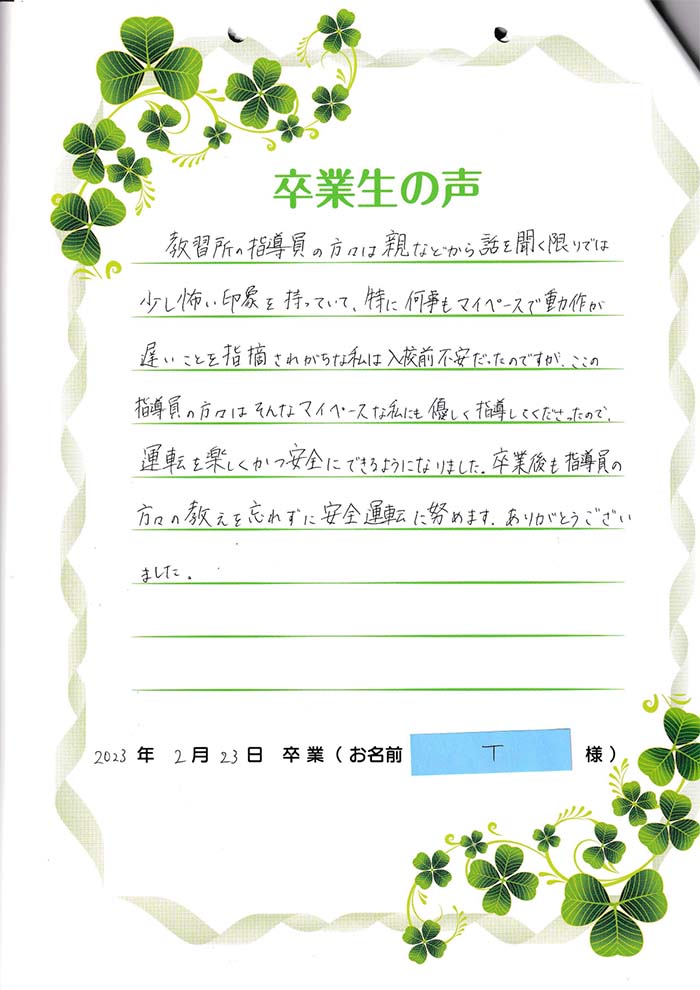 卒業生の声
教習所の指導員の方々は親などから話を聞く限りでは
少し怖い印象を持っていて、特に何事もマイペースで動作が
遅いことを指摘されがちな私は入校前不安だったのですが、ここの
指導員の方々はそんなマイペースな私にも優しく指導してくださったので、
運転を楽しくかつ安全にできるようになりました。卒業後も指導員の
方々の教えを忘れずに安全運転に努めます。ありがとうござい
ました。
2023年 2月23日 卒業(お名前 T 様)